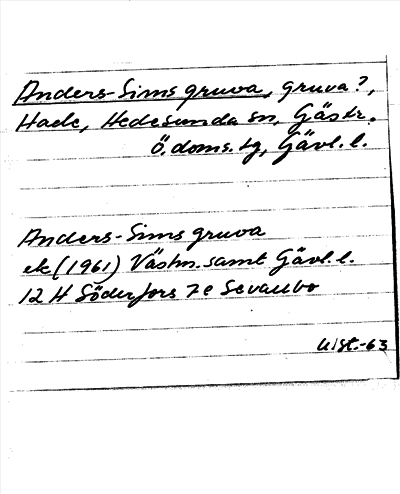 Anders-Sims gruva, gruva?,
Hade, Hedesunda sn, Gästr.
Ö. doms. tg, Gävl. l.
Anders-Sims gruva
ek (1961) Västm. samt Gävl. l.
12 H Söderfors 7e Sevallbo
-63